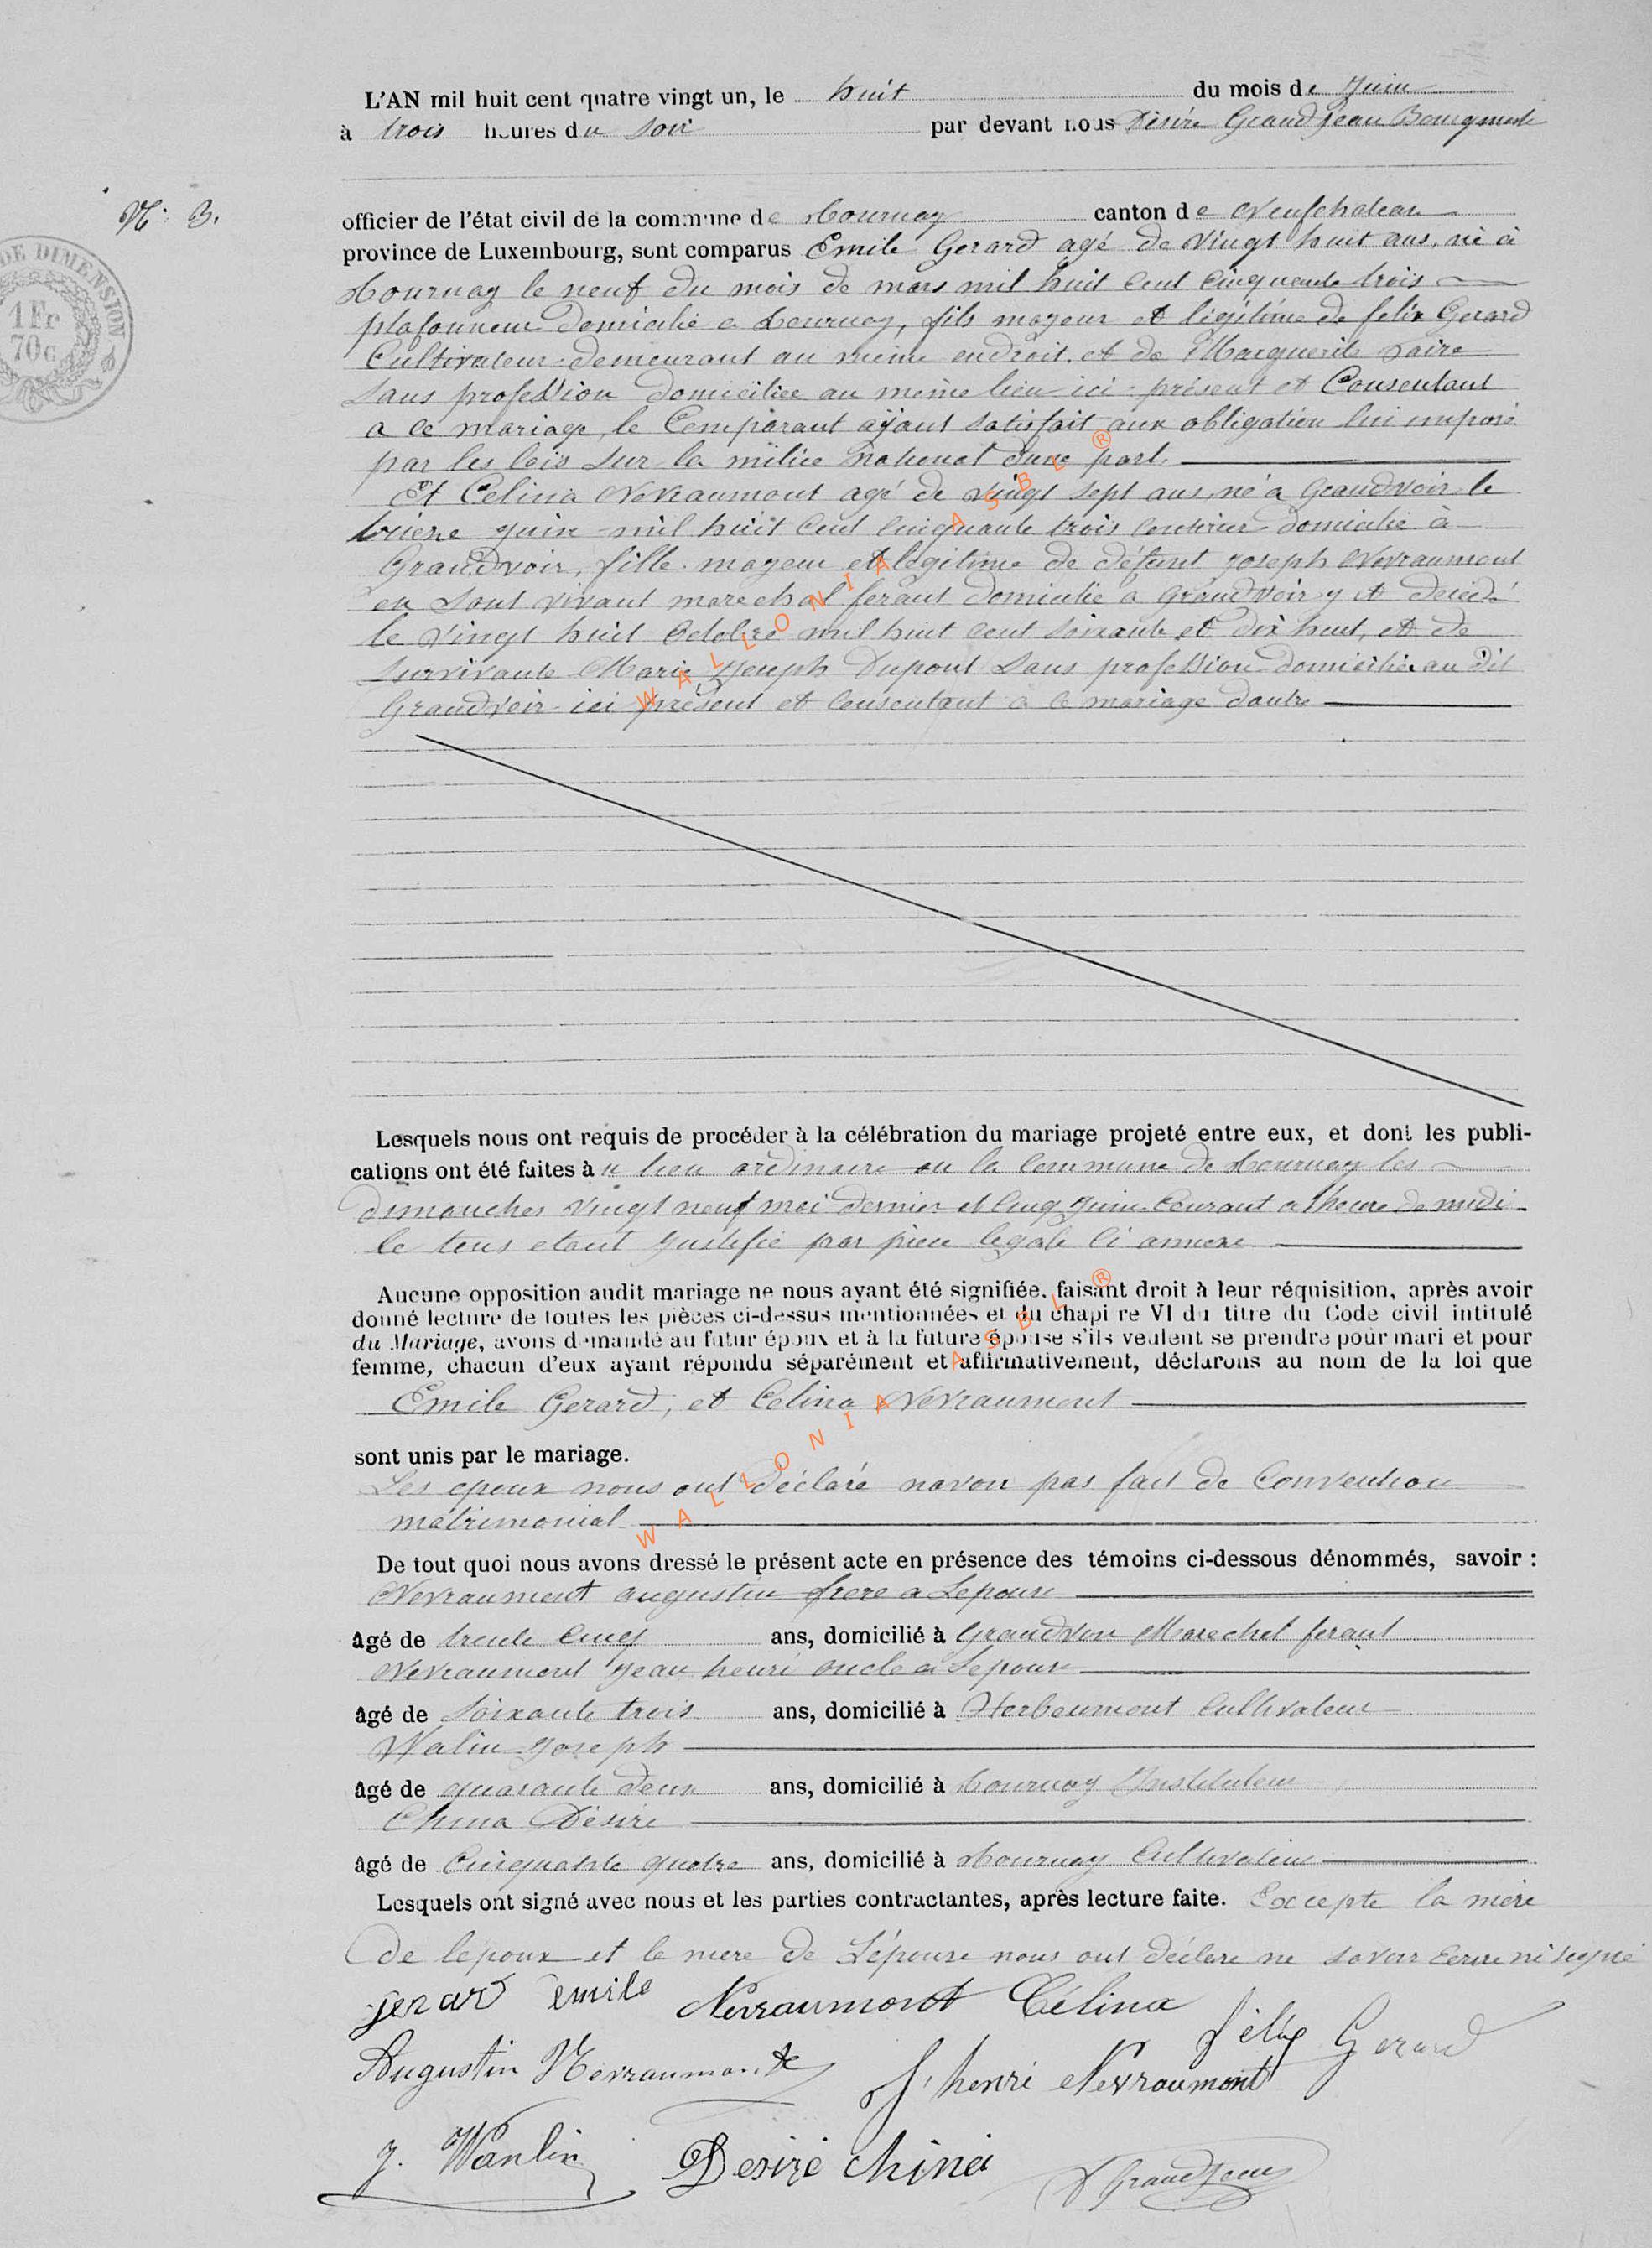 L'AN mil huit cent quatre vingt un, le huit du mois de Juin
à trois heures du soir par devant nous Désiré Grandjean Bourgmest
N: 3.
officier de l'état civil de la commune de Tournay canton de Neufchateau
province de Luxembourg, sont comparus Emile Gerard agé de vingt huit ans, né à
Tournay le neuf du mois de mars mil huit cent cinquante trois
plafonneur domicilié a Tournay, fils mageur et légitime de felix Gerard
Cultivateur demeurant au même endroit, et de Marguerite
sans profession domiciliée au même lieu ici présent et Consentant
a ce mariage, le Comparant ayant satisfait aux obligation lui imposé
par les lois sur la milice national d'une part.
Et Celina Nevraumont agé de vingt sept ans, né a Grandvoir le
treize juin mil huit cent cinquante trois couturier domicilié à
Grandvoir, fille mageur et légitime de défunt joseph Nevraumont
en sont vivant marechal ferant domicilié a Grandvoir y et décédé
le vingt huit Octobre mil huit cent soixante et dix huit, et de
survivante Marie Joseph Dupont sans profession domiciliée au dit
Grandvoir ici présent et consentant a ce mariage dautre
Lesquels nous ont requis de procéder à la célébration du mariage projeté entre eux, et dont les publi-
cations ont été faites àu lieu ordinaire en la Commune de Tournay les
dimanches vingt neuf mai dernier et cinq juin Courant a lheure de midi
le tous etant justifié par piece legale ci annexe
Aucune opposition audit mariage ne nous ayant été signifiée, faisant droit à leur réquisition, après avoir
donné lecture de toutes les pièces ci-dessus mentionnées et du chapitre VI du titre du Code civil intitulé
du Mariage, avons demandé au futur époux et à la future épouse s'ils veulent se prendre pour mari et pour
femme, chacun d'eux ayant répondu séparément et affirmativement, déclarons au nom de la loi que
Emile Gerard, et Celina Nevraumont
sont unis par le mariage.
Les epoux nous ont déclaré navoir pas fait de Convention
matrimonial
De tout quoi nous avons dressé le présent acte en présence des témoins ci-dessous dénommés, savoir :
Nevraumont augustin frere a Lepouse
âgé de trente cinq ans, domicilié à Grandvoir Marechal ferant
Nevraumont Jean henri oncle a Lepouse
âgé de soixante trois ans, domicilié à Herbeumont Cultivateur
Walin Joseph
âgé de quarante deux ans, domicilié à Tournay Instituteur
China Désiré
âgé de Cinquante quatre ans, domicilié à Tournay Cultivateur
Lesquels ont signé avec nous et les parties contractantes, après lecture faite. Excepte la mère
De lepoux et la mere de Lépouse nous ont déclare ne savoir Ecrire ni signé
gerard Emile Nevraumont Célina
félix Gerard
Augustin Nevraumont J. henri Nevraumont
J. Wanlin Desiré China D Grandjean
DE DIMENSION
1 Fr
70 c
WALLONIA ASBL ®
WALLONIA ASBL ®